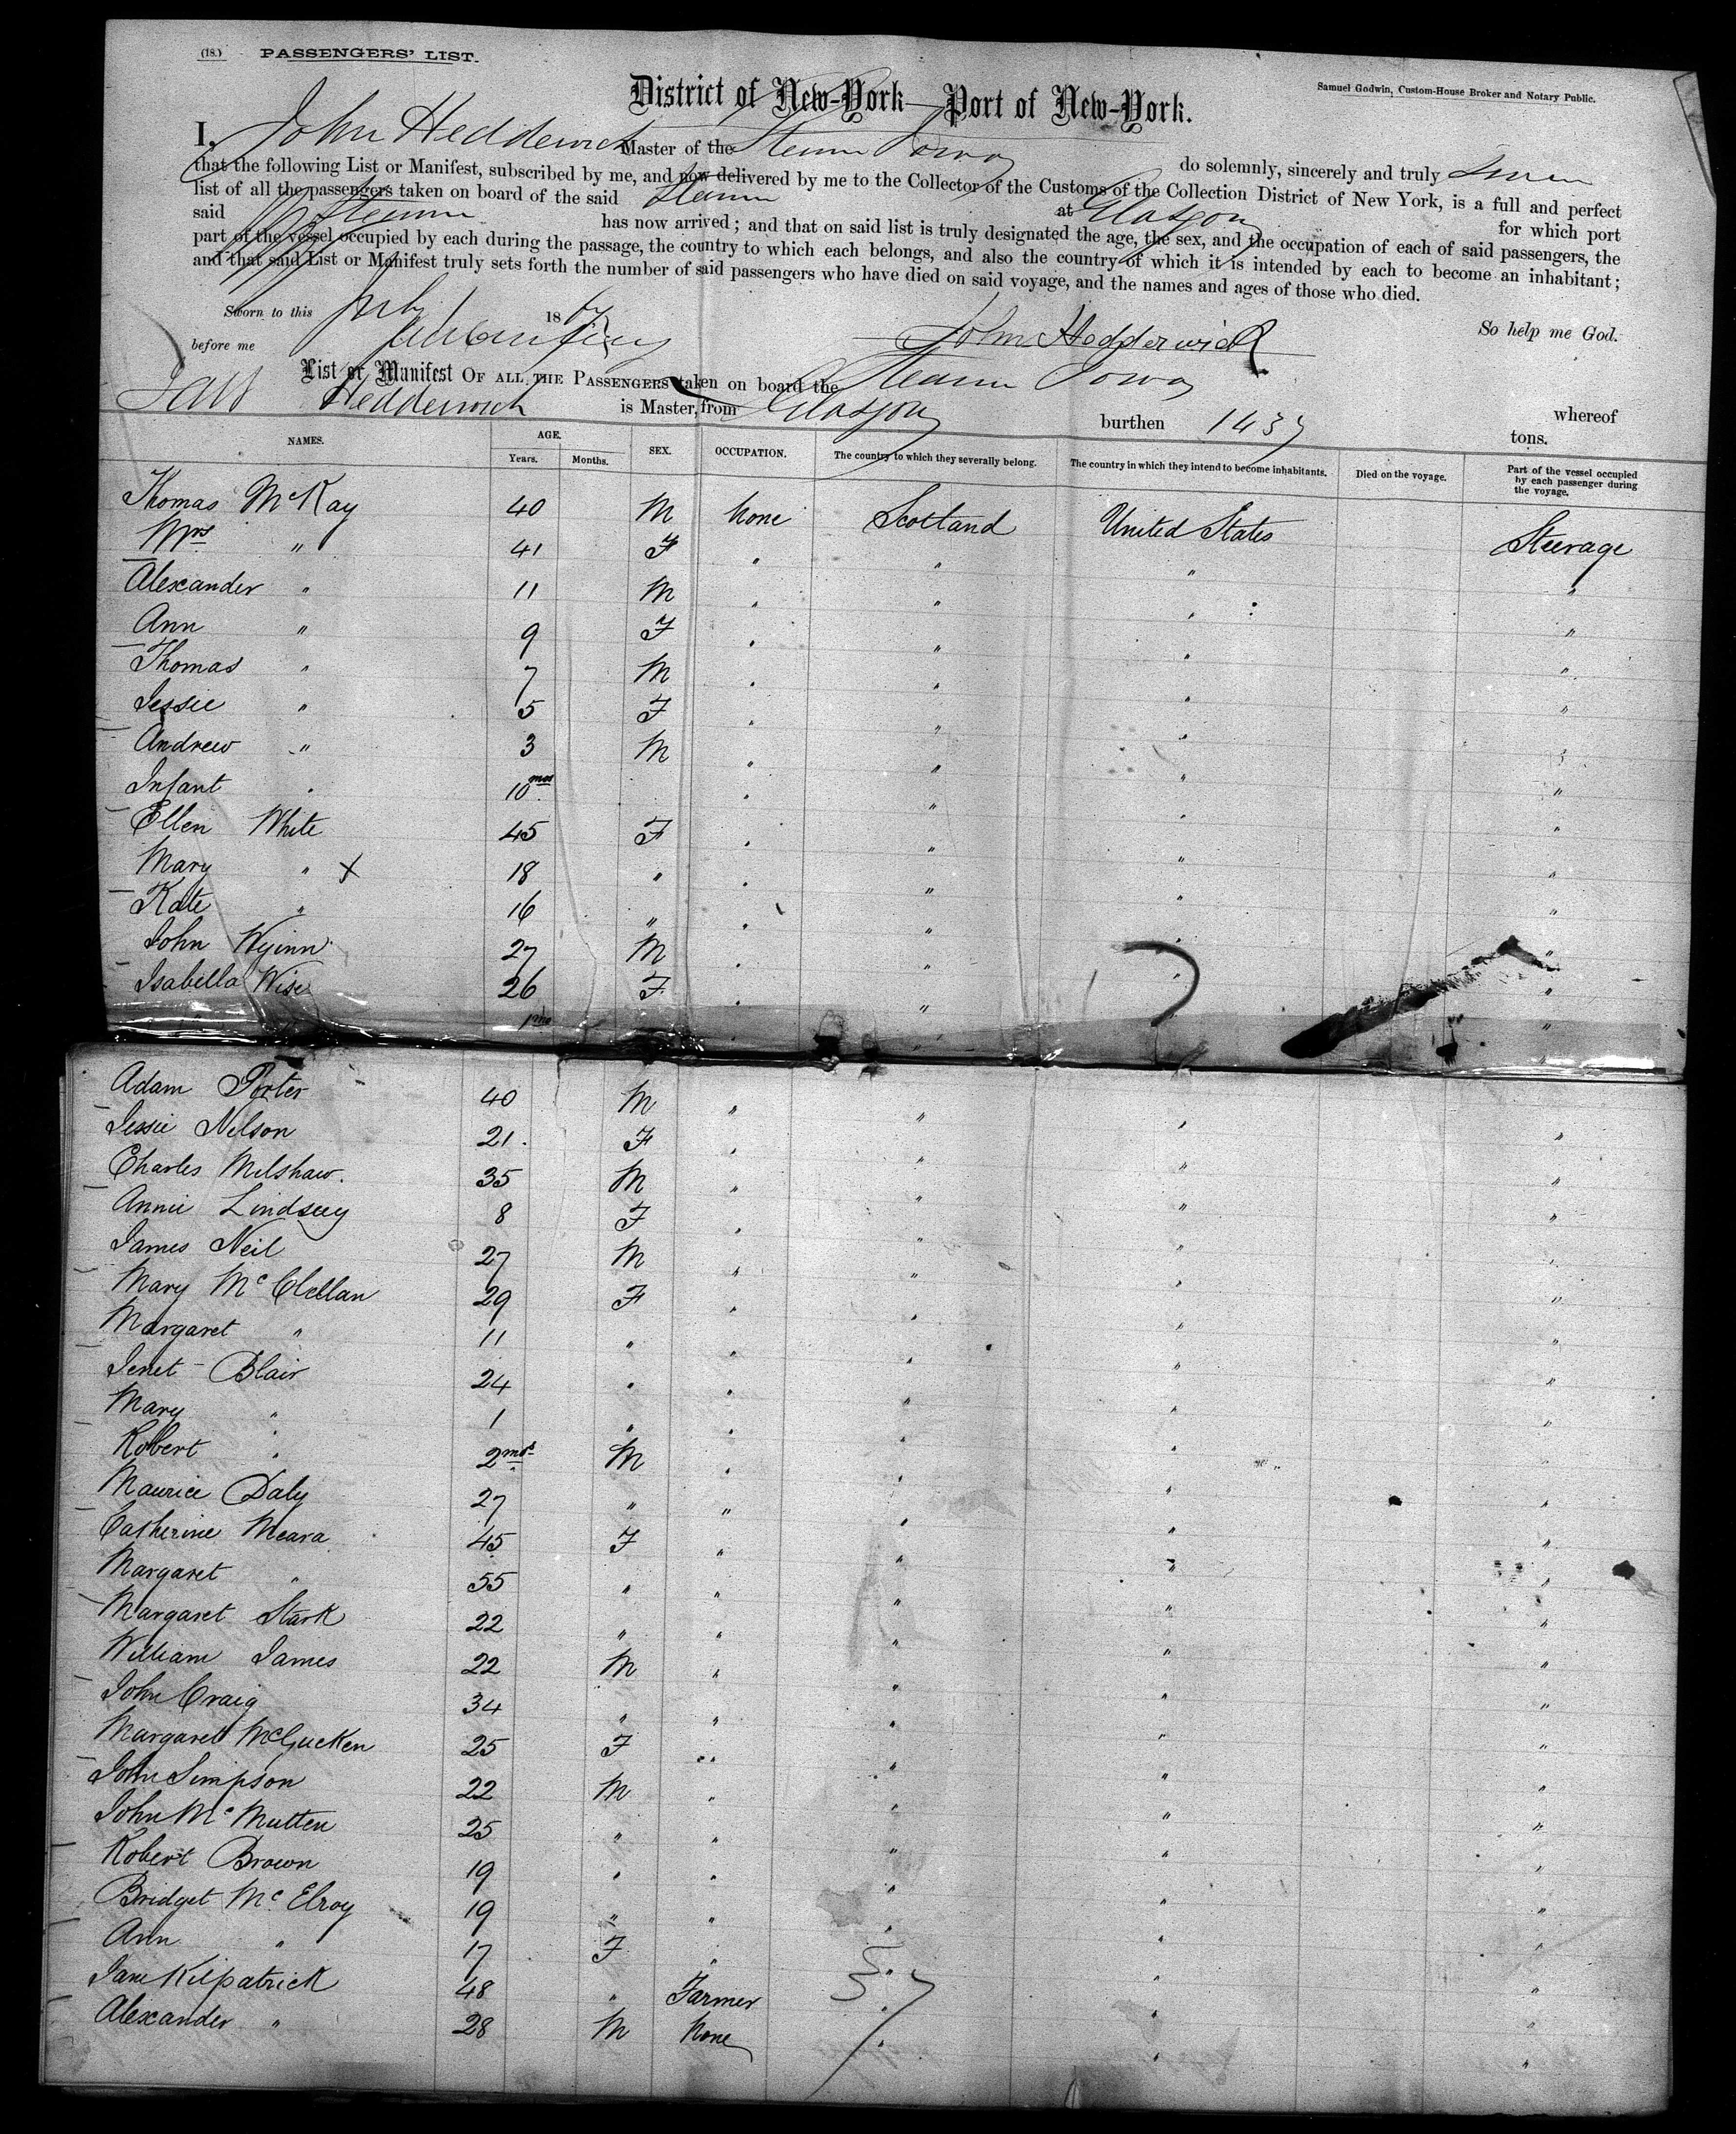 (18.) PASSENGERS' LIST.
Samuel Godwin, Custom-House Broker and Notary Public.
District of New-York—Port of New-York.
I, John Hedderwick Master of the Steam Iowa do solemnly, sincerely and truly swear
that the following List or Manifest, subscribed by me, and now delivered by me to the Collector of the Customs of the Collection District of New York, is a full and perfect
list of all the passengers taken on board of the said Steam at Glasgow for which port
said Steam has now arrived; and that on said list is truly designated the age, the sex, and the occupation of each of said passengers, the
part of the vessel occupied by each during the passage, the country to which each belongs, and also the country of which it is intended by each to become an inhabitant;
and that said List or Manifest truly sets forth the number of said passengers who have died on said voyage, and the names and ages of those who died.
Sworn to this 186 So help me God.
before me John Hedderwick
List or Manifest OF ALL THE PASSENGERS taken on board the Steam Iowa whereof
Hedderwick is Master, from Glasgow burthen 1437 tons.
NAMES. AGE. Years. Months. SEX. OCCUPATION. The country to which they severally belong. The country in which they intend to become inhabitants. Died on the voyage. Part of the vessel occupied by each passenger during the voyage.
Thomas McKay 40 M None Scotland United States Steerage
Mrs " 41 F " " " "
Alexander " 11 M " " " "
Ann " 9 F " " " "
Thomas " 7 M " " " "
Jessie " 5 F " " " "
Andrew " 3 M " " " "
Infant " 10 mos " " " "
Ellen White 45 F " " " "
Mary " X 18 " " " " "
Kate " 16 " " " " "
John Wyinn 27 M " " " "
Isabella Wise 26 F " " " "
1 mo " " " "
Adam Porter 40 M " " " "
Jessie Nelson 21 F " " " "
Charles Milshaw. 35 M " " " "
Annie Lindsey 8 F " " " "
James Neil 27 M " " " "
Mary McClellan 29 F " " " "
Margaret " 11 " " " " "
Jenet Blair 24 " " " " "
Mary " 1 " " " " "
Robert " 2 mos M " " " "
Maurice Daly 27 " " " " "
Catherine Meara 45 F " " " "
Margaret " 55 " " " " "
Margaret Stark 22 " " " " "
William James 22 M " " " "
John Craig 34 " " " " "
Margaret McGucken 25 F " " " "
John Simpson 22 M " " " "
John McMutten 25 " " " " "
Robert Brown 19 " " " " "
Bridget McElroy 19 " " " " "
Ann " 17 F " " " "
Jane Kilpatrick 48 " Farmer " " "
Alexander " 28 M None " " "
37